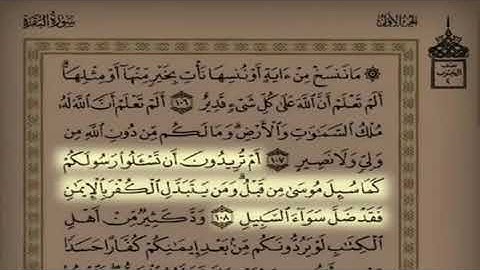 سورة البقرة
الجزء الأول
۞ مَا نَنسَخْ مِنْ ءَايَةٍ أَوْ نُنسِهَا نَأْتِ بِخَيْرٍ مِّنْهَآ أَوْ مِثْلِهَآ
أَلَمْ تَعْلَمْ أَنَّ ٱللَّهَ عَلَىٰ كُلِّ شَىْءٍ قَدِيرٌ ١٠٦ أَلَمْ تَعْلَمْ أَنَّ ٱللَّهَ لَهُۥ
مُلْكُ ٱلسَّمَٰوَٰتِ وَٱلْأَرْضِ وَمَا لَكُم مِّن دُونِ ٱللَّهِ مِن
وَلِىٍّ وَلَا نَصِيرٍ ١٠٧ أَمْ تُرِيدُونَ أَن تَسْـَٔلُوا۟ رَسُولَكُمْ
كَمَا سُئِلَ مُوسَىٰ مِن قَبْلُ وَمَن يَتَبَدَّلِ ٱلْكُفْرَ بِٱلْإِيمَٰنِ
فَقَدْ ضَلَّ سَوَآءَ ٱلسَّبِيلِ ١٠٨ وَدَّ كَثِيرٌ مِّنْ أَهْلِ
ٱلْكِتَٰبِ لَوْ يَرُدُّونَكُم مِّنۢ بَعْدِ إِيمَٰنِكُمْ كُفَّارًا حَسَدًا